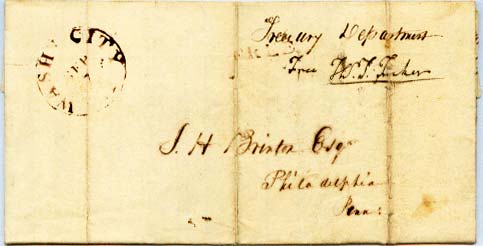 WASHN CITY
SEP
FREE
Treasury Department
Free Th. T. Tucker
J. H. Brinton Esqr
Philadelphia
Penna: